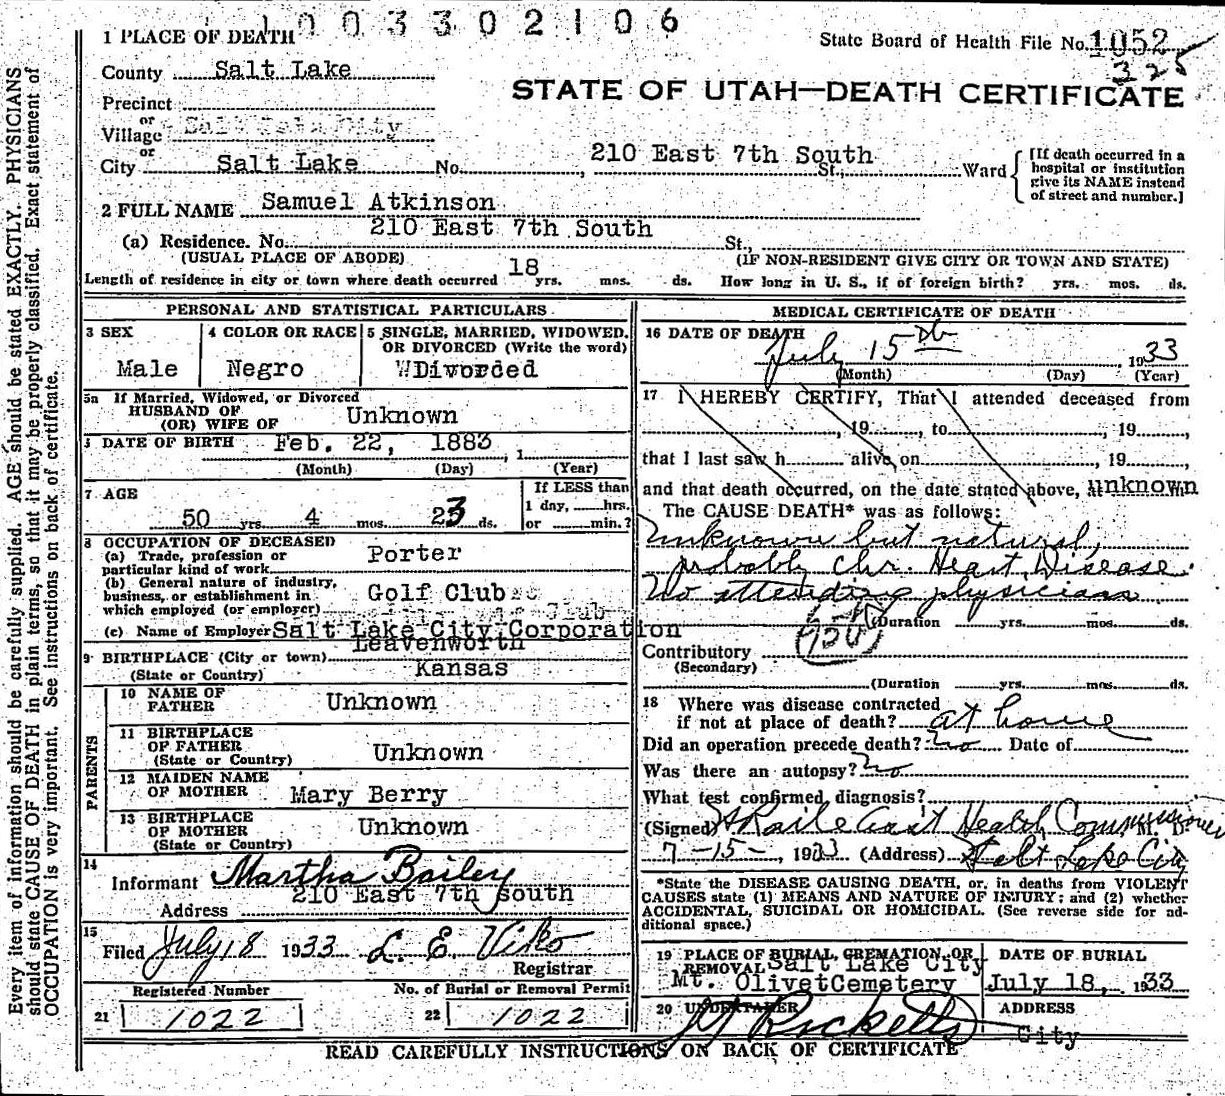 1003302106
1 PLACE OF DEATH
State Board of Health File No. 1052
325
County Salt Lake
STATE OF UTAH—DEATH CERTIFICATE
Precinct
or
Village Salt Lake City
or
City Salt Lake No. 210 East 7th South St., Ward
[If death occurred in a
hospital or institution
give its NAME instead
of street and number.]
2 FULL NAME Samuel Atkinson
(a) Residence. No. 210 East 7th South St.,
(USUAL PLACE OF ABODE) (IF NON-RESIDENT GIVE CITY OR TOWN AND STATE)
Length of residence in city or town where death occurred 18 yrs. mos. ds. How long in U. S., if of foreign birth? yrs. mos. ds.
PERSONAL AND STATISTICAL PARTICULARS
3 SEX
Male
4 COLOR OR RACE
Negro
5 SINGLE, MARRIED, WIDOWED,
OR DIVORCED (Write the word)
WDivorded
5a If Married, Widowed, or Divorced
HUSBAND OF
(OR) WIFE OF Unknown
DATE OF BIRTH Feb. 22, 1883, 1
(Month) (Day) (Year)
7 AGE
50 yrs. 4 mos. 23 ds.
If LESS than
1 day, hrs.
or min.?
8 OCCUPATION OF DECEASED
(a) Trade, profession or
particular kind of work Porter
(b) General nature of industry,
business, or establishment in
which employed (or employer) Golf Club
(c) Name of Employer Salt Lake City Corporation
9 BIRTHPLACE (City or town) Leavenworth
(State or Country) Kansas
PARENTS
10 NAME OF
FATHER Unknown
11 BIRTHPLACE
OF FATHER
(State or Country) Unknown
12 MAIDEN NAME
OF MOTHER Mary Berry
13 BIRTHPLACE
OF MOTHER
(State or Country) Unknown
14
Informant Martha Bailey
Address 210 East 7th South
15
Filed July 18 1933 L. E. Viko
Registrar
Registered Number No. of Burial or Removal Permit
21 1022 22 1022
MEDICAL CERTIFICATE OF DEATH
16 DATE OF DEATH
July 15th 1933
(Month) (Day) (Year)
17 I HEREBY CERTIFY, That I attended deceased from
, 19 , to , 19 ,
that I last saw h alive on , 19 ,
and that death occurred, on the date stated above, at unknown
The CAUSE DEATH* was as follows:
Unknown but natural,
probably Chr. Heart Disease.
No attending physicians
(Duration yrs. mos. ds.
Contributory
(Secondary)
(Duration yrs. mos. ds.
18 Where was disease contracted
if not at place of death? at home
Did an operation precede death? no Date of
Was there an autopsy? no
What test confirmed diagnosis?
(Signed) Health Commissioner M. D.
7-15-, 1933 (Address) Salt Lake City
*State the DISEASE CAUSING DEATH, or, in deaths from VIOLENT
CAUSES state (1) MEANS AND NATURE OF INJURY; and (2) whether
ACCIDENTAL, SUICIDAL OR HOMICIDAL. (See reverse side for ad-
ditional space.)
19 PLACE OF BURIAL, CREMATION, OR
REMOVAL Salt Lake City
Mt. OlivetCemetery
DATE OF BURIAL
July 18, 1933
20 UNDERTAKER
Ricketts
ADDRESS
City
READ CAREFULLY INSTRUCTIONS ON BACK OF CERTIFICATE
Every item of information should be carefully supplied. AGE should be stated EXACTLY. PHYSICIANS
should state CAUSE OF DEATH in plain terms, so that it may be properly classified. Exact statement of
OCCUPATION is very important. See instructions on back of certificate.